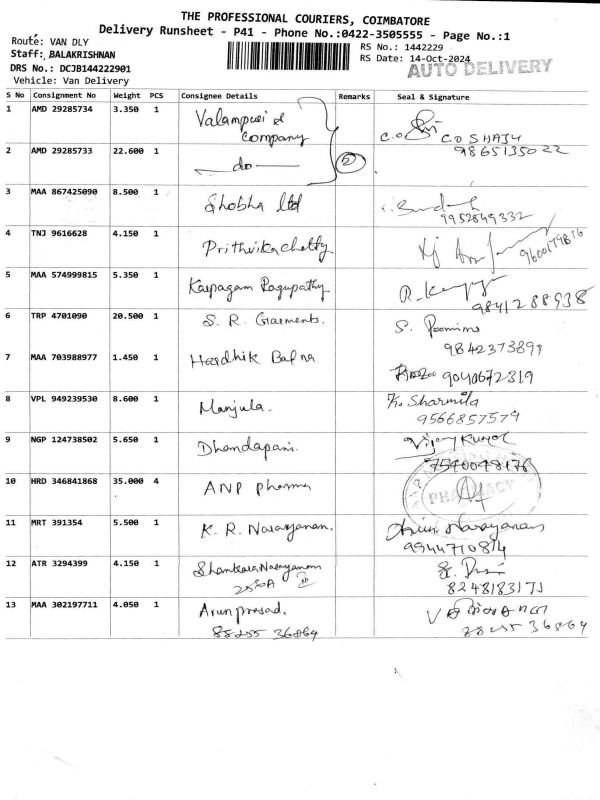 THE PROFESSIONAL COURIERS, COIMBATORE
Delivery Runsheet - P41 - Phone No.:0422-3505555 - Page No.:1
Route: VAN DLY
Staff: BALAKRISHNAN
DRS No.: DCJB144222901
Vehicle: Van Delivery
RS No.: 1442229
RS Date: 14-Oct-2024
AUTO DELIVERY
S No Consignment No Weight PCS Consignee Details Remarks Seal & Signature
1 AMD 29285734 3.350 1 Valampuri & Company C.O SHAJU
9865135022
2 AMD 29285733 22.600 1 do
3 MAA 867425090 8.500 1 Shobha ltd
9952849332
4 TNJ 9616628 4.150 1 Prithvika chetty
9600179816
5 MAA 574999815 5.350 1 Karpagam Ragupathy
9841288938
6 TRP 4701090 20.500 1 S. R. Garments.
9842373899
7 MAA 703988977 1.450 1 Hardhik Bafna 9040672319
8 VPL 949239530 8.600 1 Manjula. K. Sharmila
9566857579
9 NGP 124738502 5.650 1 Dhandapani. Vijay Kumar
7540048178
10 HRD 346841868 35.000 4 ANP pharma PHARMACY
11 MRT 391354 5.500 1 K. R. Narayanan. Narayanan
9944710814
12 ATR 3294399 4.150 1 Shankara Narayanan
8248183175
13 MAA 302197711 4.050 1 Arun prasad.
85255 36864